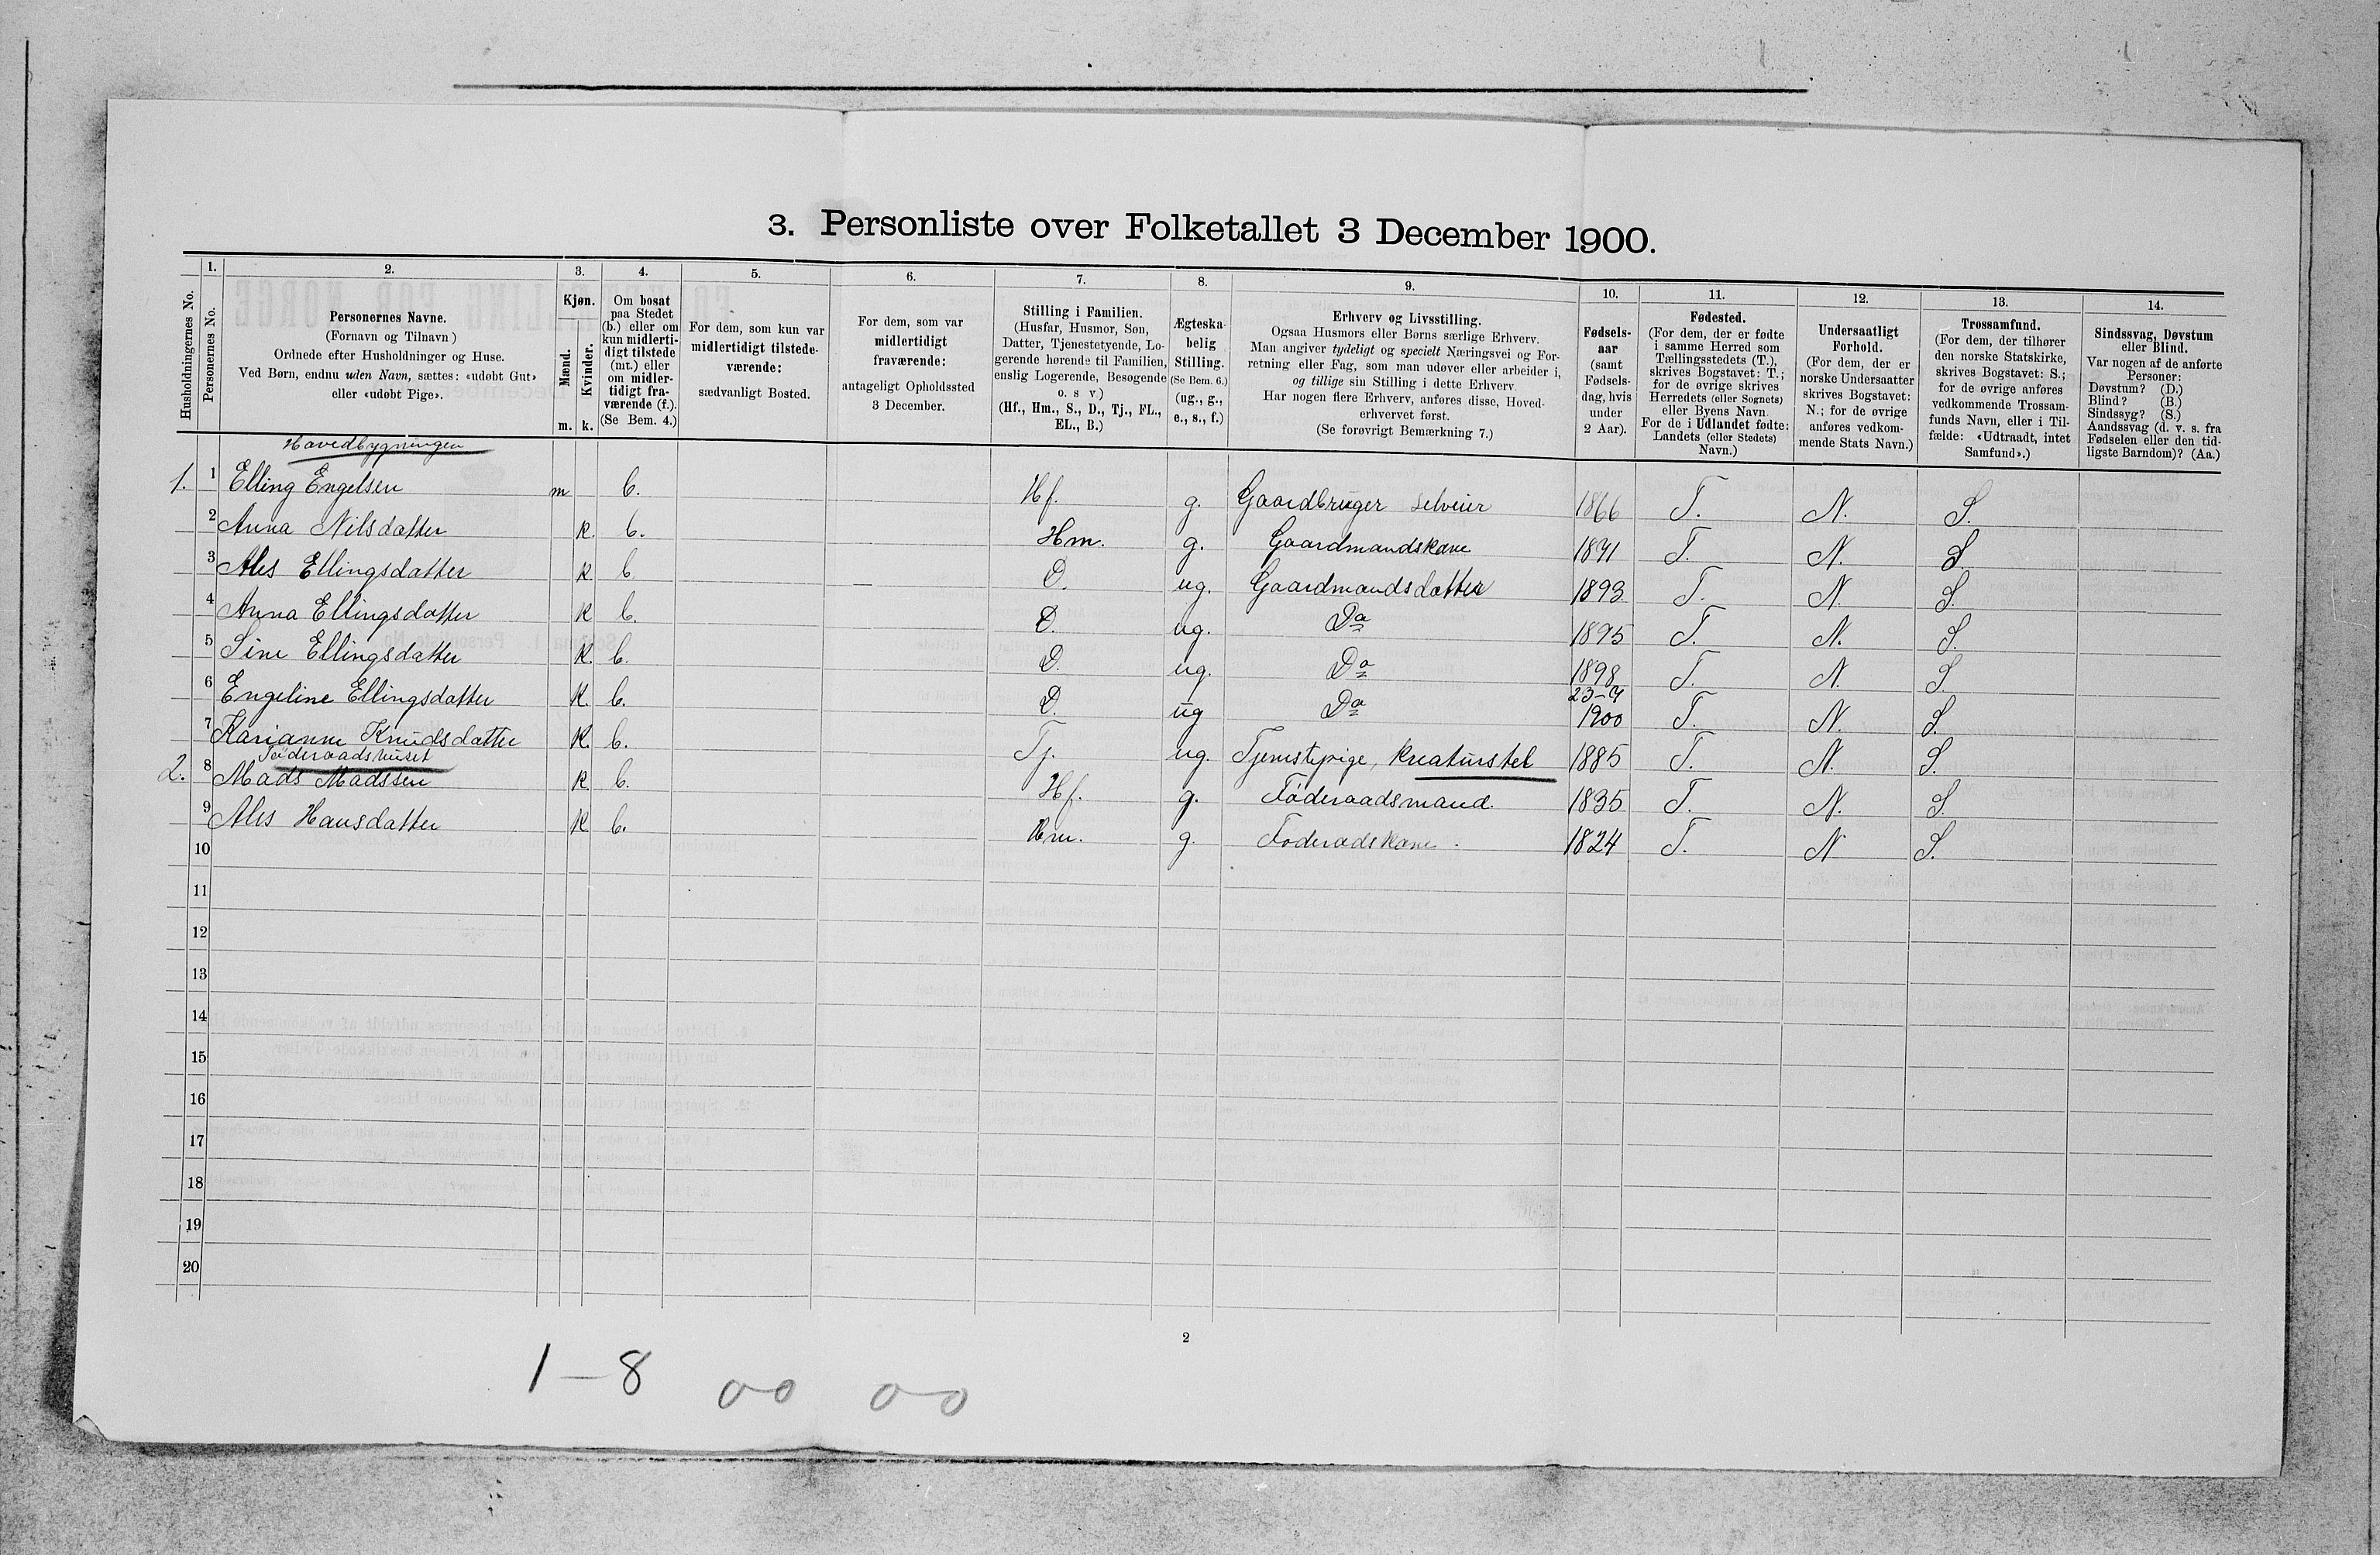 3. Personliste over Folketallet 3 December 1900.
Husholdningernes No.
1.
Personernes No.
2.
Personernes Navne.
(Fornavn og Tilnavn)
Ordnede efter Husholdninger og Huse.
Ved Børn, endnu uden Navn, sættes: «udøbt Gut»
eller «udøbt Pige».
3.
Kjøn.
Mænd.
Kvinder.
m. k.
4.
Om bosat
paa Stedet
(b.) eller om
kun midlerti-
digt tilstede
(mt.) eller
om midler-
tidigt fra-
værende (f.).
(Se Bem. 4.)
5.
For dem, som kun var
midlertidigt tilstede-
værende:
sædvanligt Bosted.
6.
For dem, som var
midlertidigt
fraværende:
antageligt Opholdssted
3 December.
7.
Stilling i Familien.
(Husfar, Husmor, Søn,
Datter, Tjenestetyende, Lo-
gerende hørende til Familien,
enslig Logerende, Besøgende
o. s v)
(Hf., Hm., S., D., Tj., FL.,
EL., B.)
8.
Ægteska-
belig
Stilling.
(Se Bem. 6.)
(ug., g.,
e., s., f.)
9.
Erhverv og Livsstilling.
Ogsaa Husmors eller Børns særlige Erhverv.
Man angiver tydeligt og specielt Næringsvei og For-
retning eller Fag, som man udøver eller arbeider i,
og tillige sin Stilling i dette Erhverv.
Har nogen flere Erhverv, anføres disse, Hoved-
erhvervet først.
(Se forøvrigt Bemærkning 7.)
10.
Fødsels-
aar
(samt
Fødsels-
dag, hvis
under
2 Aar).
11.
Fødested.
(For dem, der er fødte
i samme Herred som
Tællingsstedets (T.),
skrives Bogstavet: T.;
for de øvrige skrives
Herredets (eller Sognets)
eller Byens Navn.
For de i Udlandet fødte:
Landets (eller Stedets)
Navn.)
12.
Undersaatligt
Forhold.
(For dem, der er
norske Undersaatter
skrives Bogstavet:
N.; for de øvrige
anføres vedkom-
mende Stats Navn.)
13.
Trossamfund.
(For dem, der tilhører
den norske Statskirke,
skrives Bogstavet: S.;
for de øvrige anføres
vedkommende Trossam-
funds Navn, eller i Til-
fælde: «Udtraadt, intet
Samfund».)
14.
Sindssvag, Døvstum
eller Blind.
Var nogen af de anførte
Personer:
Døvstum? (D.)
Blind? (B.)
Sindssyg? (S.)
Aandssvag (d. v. s. fra
Fødselen eller den tid-
ligste Barndom)? (Aa.)
Hovedbygningen
1. 1 Elling Engelsen m b. Hf. g. Gaardbruger selveier 1866 T. N. S.
2 Anna Nilsdatter k. b. Hm. g. Gaardmandskone 1871 T. N. S.
3 Ales Ellingsdatter k b D. ug. Gaardmandsdatter 1893 T. N. S.
4 Anna Ellingsdatter k b. D. ug. Do 1895 T. N. S.
5 Sine Ellingsdatter k. b. D. ug. Do 1898 T. N. S.
6 Engeline Ellingsdatter k. b. D. ug Do 23-7 1900 T. N. S.
7 Karianne Knudsdatter k. b. Tj. ug. Tjenestepige, kreaturstel 1885 T. N. S.
Föderaadshuset
2. 8 Mads Madssen k b. Hf. g. Föderaadsmand. 1835 T. N. S.
9 Ales Hansdatter k b. Hm. g. Foderadskone. 1824 T. N S.
10
11
12
13
14
15
16
17
18
19
20
2
1-8 00 00